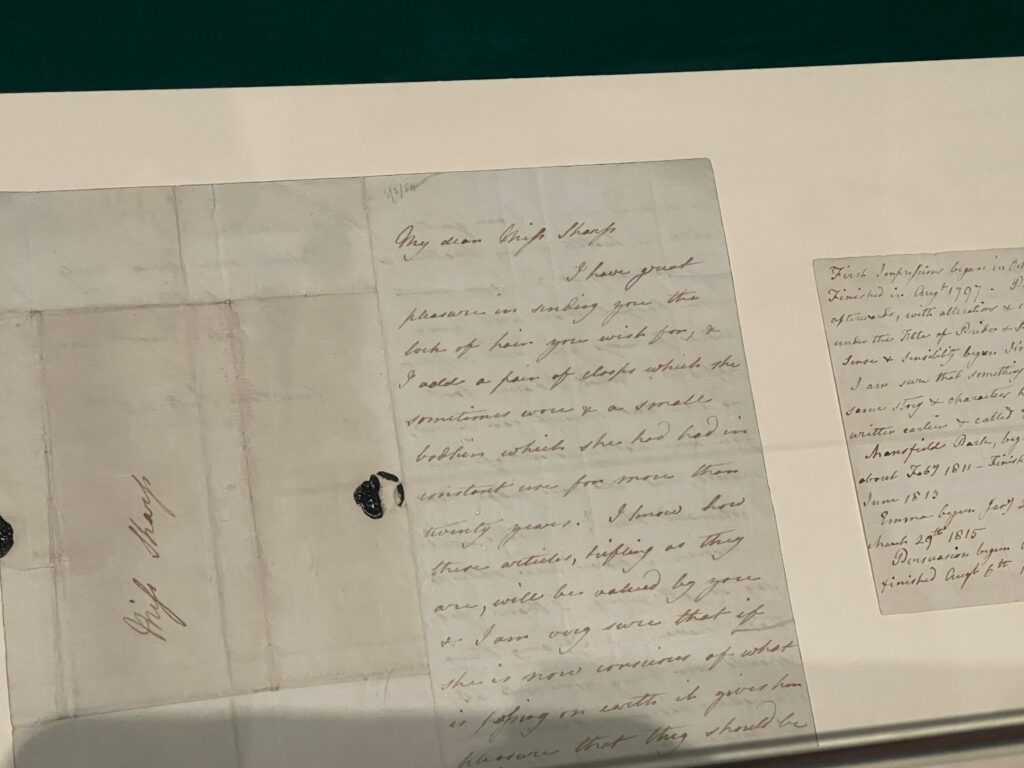 Miss Sharp
My dear Miss Sharp
I have great
pleasure in sending you the
lock of hair you wish for, &
I add a pair of clasps which she
sometimes wore & a small
bodkin which she had had in
constant use for more than
twenty years. I know how
these articles, trifling as they
are, will be valued by you
& I am very sure that if
she is now conscious of what
is passing on earth it gives her
pleasure that they should be
First Impressions begun in Oct
Finished in Augt 1797.
afterwards, with alterations &
under the Title of Pride &
Sense & Sensibility begun
I am sure that something
same story & characters
written earlier & called
Mansfield Park, beg
about Feby 1811 - Finish
June 1813
Emma begun Jany
March 29th 1815
Persuasion begun
finished Augt 6th